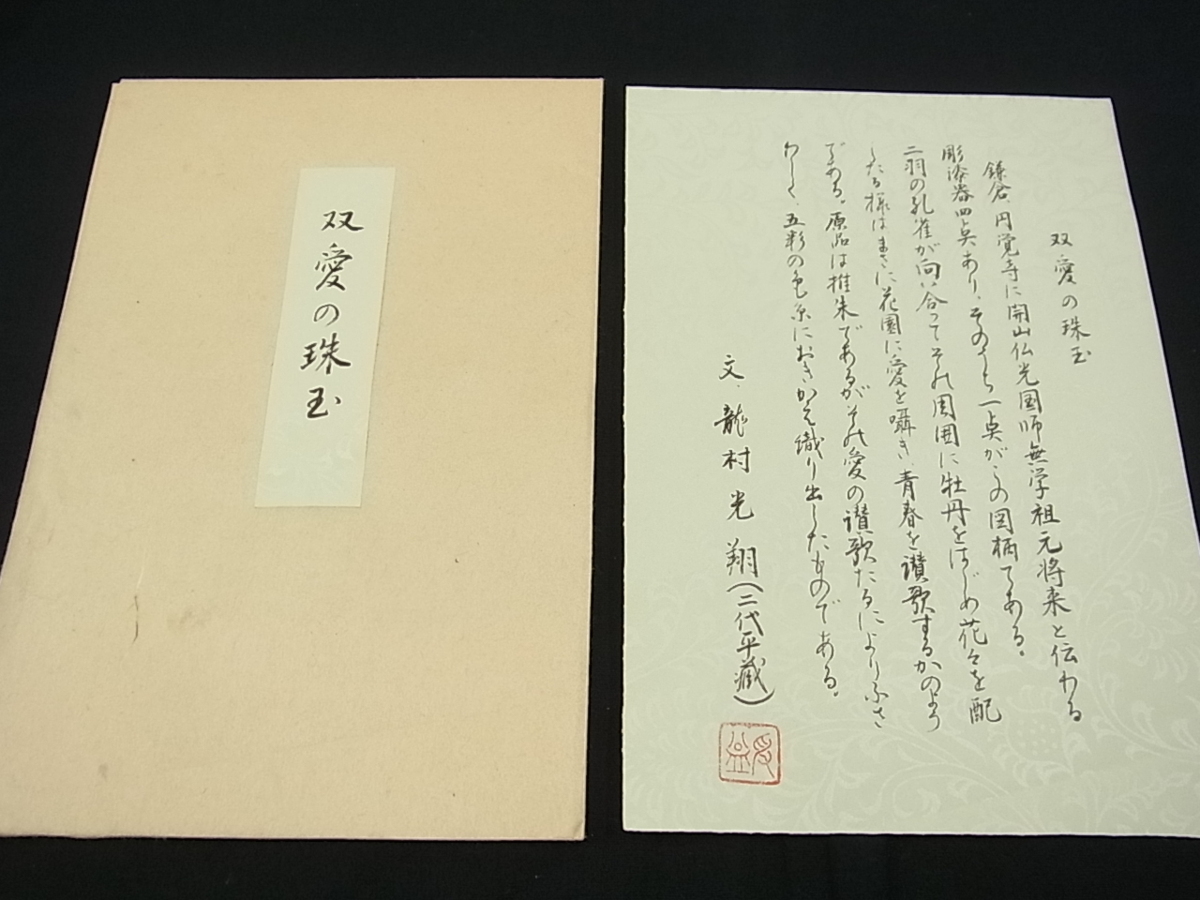 双愛の珠玉
双愛の珠玉
鎌倉、円覚寺に開山仏光国師無学祖元将来と伝わる
彫漆器四点あり、そのうち一点がこの図柄である。
二羽の孔雀が向い合ってその周囲に牡丹をはじめ花々を配
したる様はまさに花園に愛を囁き、青春を讃歌するかのよう
である。原品は推朱であるがその愛の讃歌たるによりふさ
わしく、五彩の色糸におきかえ織り出したものである。
文、龍村光翔(二代平藏)